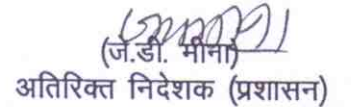 (जे.डी. मीना)
अतिरिक्त निदेशक (प्रशासन)